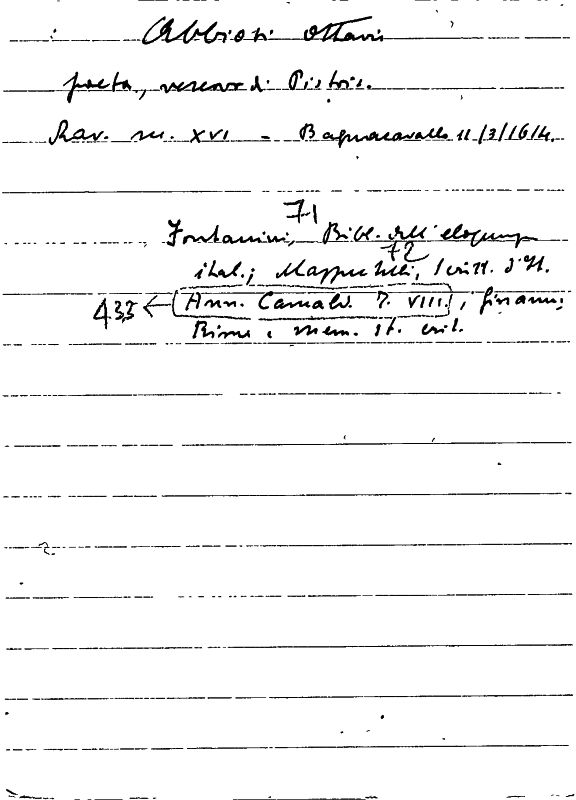 Abbiosi Ottavio
poeta, vescovo di Pistoia.
Rav. sec. XVI - Bagnacavallo 11/3/1614.
71
Fontanini, Bibl. dell'eloquenza
72
ital.; Mazzuchelli, Scritt. d'It.
435 ← Ann. Camald. T. VIII.; Ginanni
Rime e mem. st. crit.